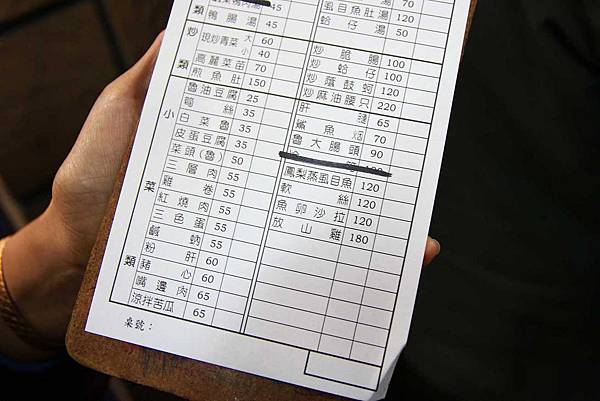 鴨腸湯 45
炒類
現炒青菜 大 60
小 40
高麗菜苗 70
煎魚肚 150
小菜類
魯油豆腐 25
筍絲 35
白菜魯 35
皮蛋豆腐 35
菜頭(魯) 50
三層肉 55
雞卷 55
紅燒肉 55
三色蛋 55
鹹蚋 55
粉肝 60
豬心 60
嘴邊肉 65
涼拌苦瓜 65
桌號：
湯 70
虱目魚肚湯 50
蛤仔湯 50
炒脆腸 100
炒蛤仔 100
炒蔭鼓蚵 120
炒麻油腰只 220
肝腱 65
鯊魚烟 70
魯大腸頭 90
鳳梨蒸虱目魚 120
軟絲 120
魚卵沙拉 120
放山雞 180